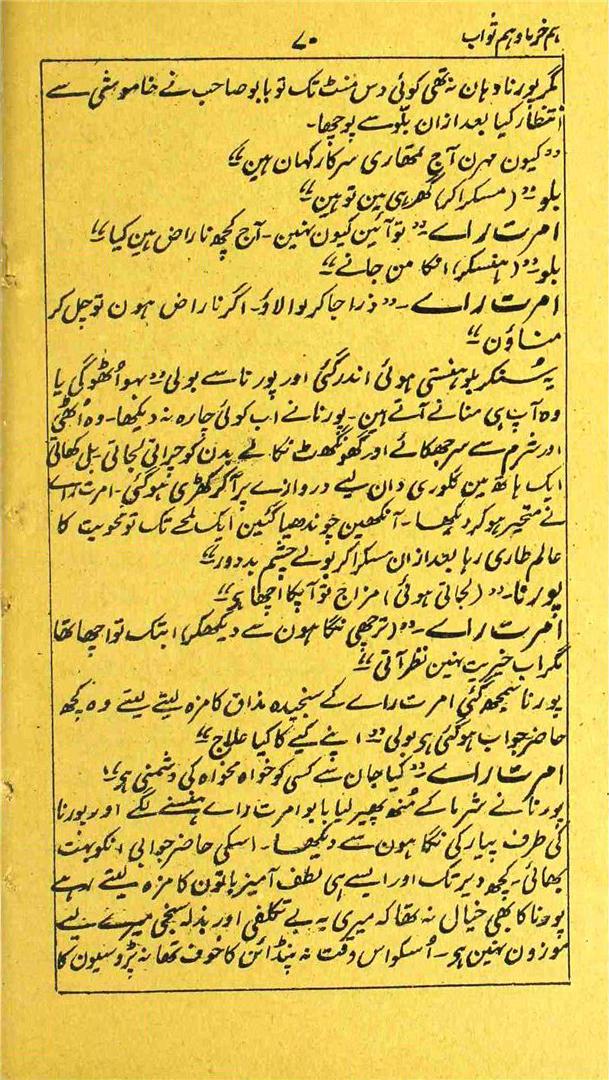 ہم خرما و ہم ثواب
۷۰
مگر پورنا وہان نہ تھی کوئی دس منٹ تک تو بابو صاحب نے خاموشی سے
انتظار کیا بعد ازان بلّو سے پوچھا۔
”کیون مہرن آج تمھاری سرکار کہان ہین“
بلو ”(مسکرا کر) گھر ہی مین تو ہین“
امرت راے ”تو آئین کیون نہین۔ آج کچھ ناراض ہین کیا“
بلو ”(ہنسکر) انکا من جانے“
امرت راے۔ ”ذرا جا کر لوا لاؤ۔ اگر ناراض ہون تو چل کر
مناؤن“
یہ سُنکر بلو ہنستی ہوئی اندر گئی اور پورنا سے بولی ”بہو اُٹھو گی یا
وہ آپ ہی منانے آتے ہین۔ پورنا نے اب کوئی چارہ نہ دیکھا۔ وہ اُٹھی
اور شرم سے سر جھکائے اور گھونگھٹ نکالے بدن کو چراتی لجاتی بل کھاتی
ایک ہاتھ مین گلوری دان لیے دروازے پر آ کر کھڑی ہو گئی۔ امرت راے
نے متحیر ہو کر دیکھا۔ آنکھین چوندھیا گئین ایک لمحے تک تو محویت کا
عالم طاری رہا بعد ازان مسکرا کر بولے چشم بد دور“
پورنا۔ ”(لجاتی ہوئی) مزاج تو آپکا اچھا ہی“
امرت راے۔ ”(ترچھی نگاہون سے دیکھکر) ابتک تو اچھا تھا
مگر اب خیریت نہین نظر آتی“
پورنا سمجھ گئی امرت راے کے سنجیدہ مذاق کا مزہ لیتے لیتے وہ کچھ
حاضر جواب ہو گئی ہی بولی ”اپنے کیے کا کیا علاج“
امرت راے۔ ”کیا جان سے کسی کو خواہ مخواہ کی دشمنی ہی“
پورنا نے شرما کے منھ پھیر لیا بابو امرت راے ہنسنے لگے اور پورنا
کی طرف پیار کی نگاہون سے دیکھا۔ اسکی حاضر جوابی انکو بہت
بھائی۔ کچھ دیر تک اور ایسے ہی لطف آمیز باتون کا مزہ لیتے رہے
پورنا کا بھی خیال نہ تھا کہ میری یہ بے تکلفی اور بذلہ سنجی میرے لیے
موزون نہین ہی۔ اُسکو اس وقت نہ پنڈائن کا خوف تھا نہ پڑوسیون کا